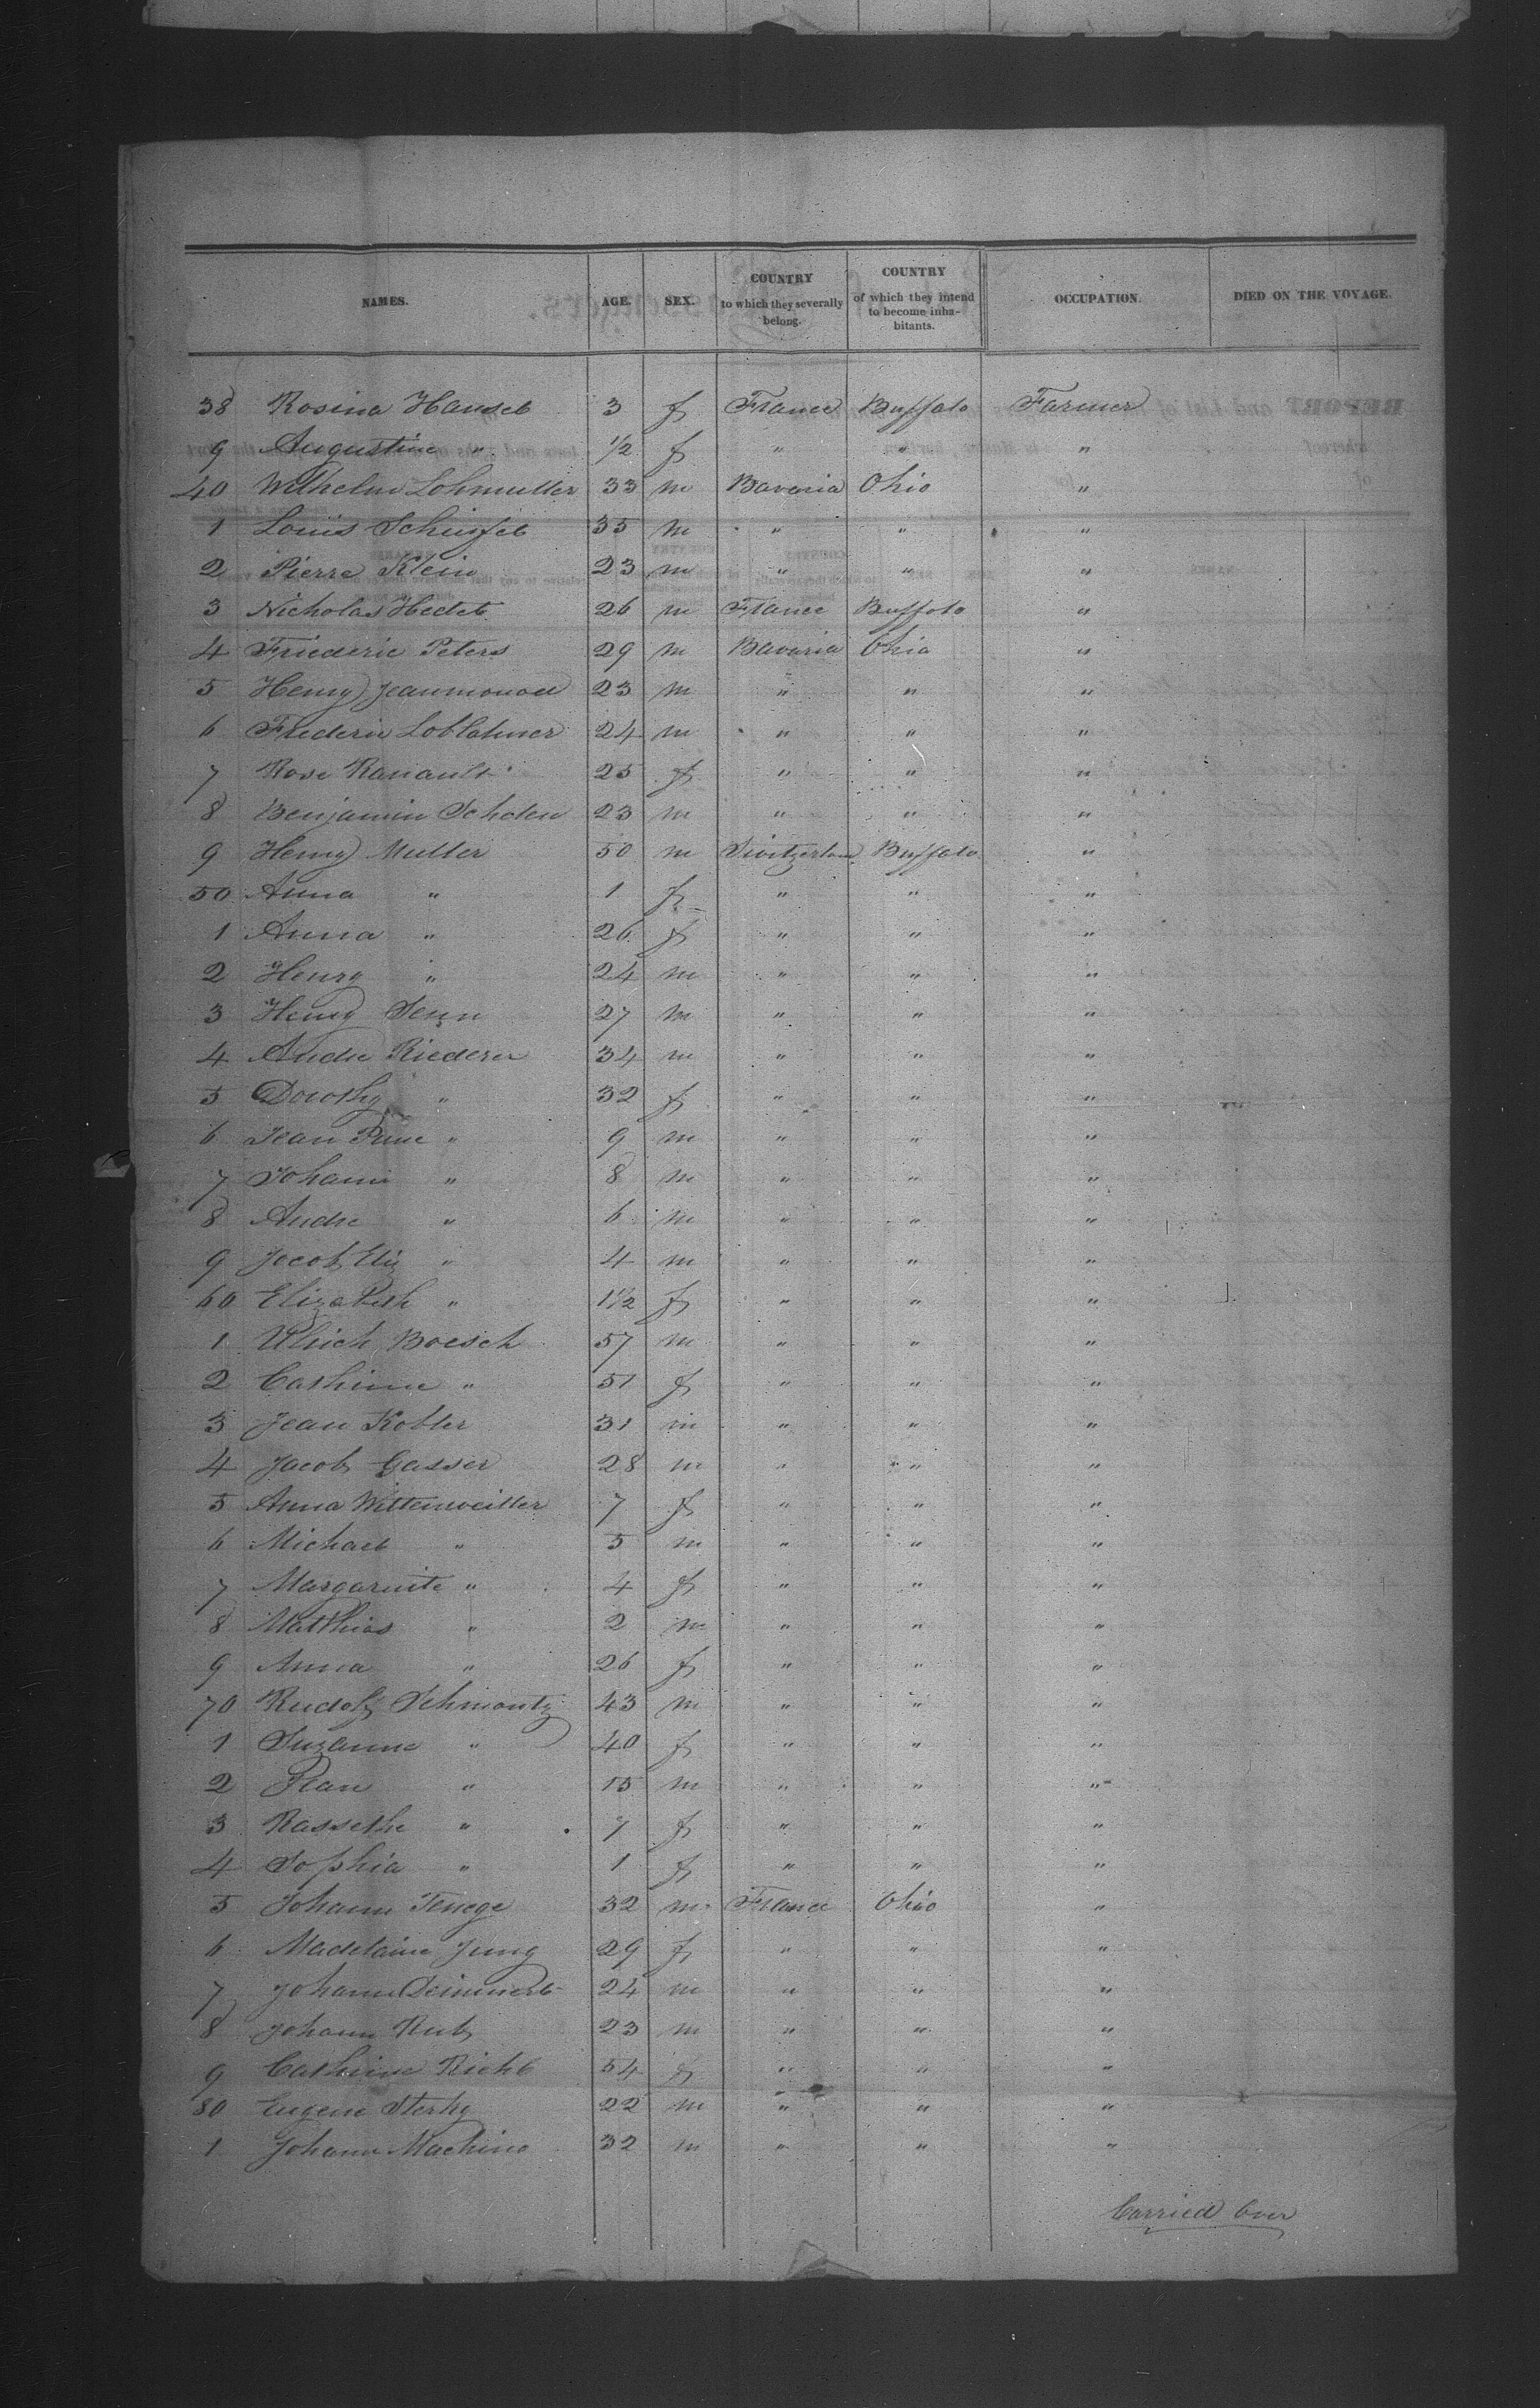 NAMES. AGE. SEX. COUNTRY to which they severally belong. COUNTRY of which they intend to become inhabitants. OCCUPATION. DIED ON THE VOYAGE.
38 Rosina 3 f France Buffalo Farmer
9 Augustine " 1/2 f " " "
40 Wilhelm Lohmuller 33 m Bavaria Ohio "
1 Louis 35 m " " "
2 Pierre Klein 23 m " " "
3 Nicholas 26 m France Buffalo "
4 Friederic Peters 29 m Bavaria Ohio "
5 Henry Jeanmonod 23 m " " "
6 Frederic 24 m " " "
7 Rose 25 f " " "
8 Benjamin 23 m " " "
9 Henry Muller 50 m Switzerland Buffalo "
50 Anna " 1 f " " "
1 Anna " 26 f " " "
2 Henry " 24 m " " "
3 Henry Senn 27 m " " "
4 Andre Riederer 34 m " " "
5 Dorothy " 32 f " " "
6 Jean " 9 m " " "
7 Johann " 8 m " " "
8 Andre " 6 m " " "
9 Jacob " 4 m " " "
60 Elizabeth " 1 1/2 f " " "
1 Ulrich Boesch 57 m " " "
2 Cathrine " 51 f " " "
3 Jean Kobler 31 m " " "
4 Jacob Gasser 28 m " " "
5 Anna Wittenweiller 7 f " " "
6 Michael " 5 m " " "
7 Margaruite " 4 f " " "
8 Matthias " 2 m " " "
9 Anna " 26 f " " "
70 Rudolf Schmontz 43 m " " "
1 Suzanne " 40 f " " "
2 " 15 m " " "
3 " 7 f " " "
4 Sophia " 1 f " " "
5 Johann 32 m France Ohio "
6 Madelaine Jung 29 f " " "
7 Johann 24 m " " "
8 Johann 23 m " " "
9 Cathrine 54 f " " "
80 Eugene 22 m " " "
1 Johann Machino 32 m " " "
Carried Over